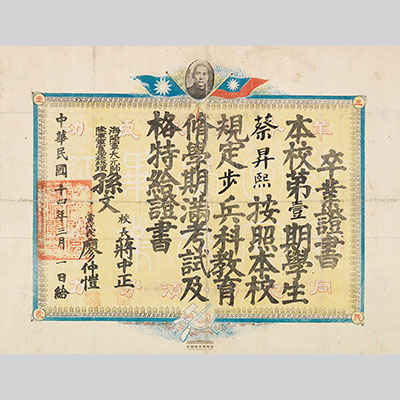 卒業證書
本校第壹期學生
蔡昇熙按照本校
規定步兵科教育
修學期滿考試及
格特給證書
海陸軍大元帥
陸軍軍官學校總理孫文
校長蔣中正
黨代表廖仲愷
中華民國十四年三月一日給